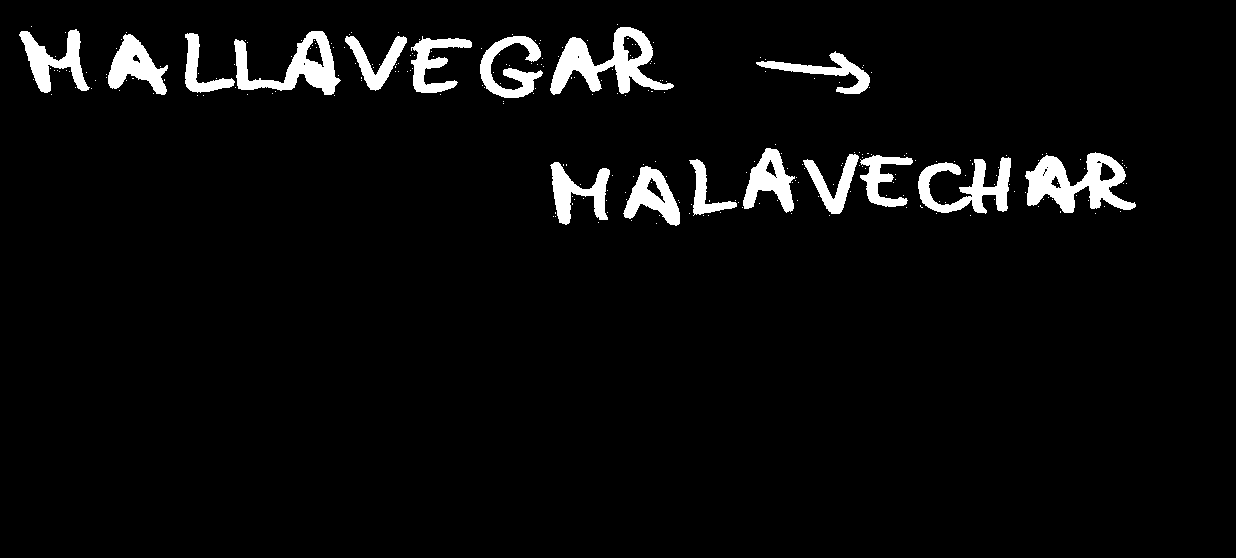 MALLAVEGAR →
MALAVECHAR